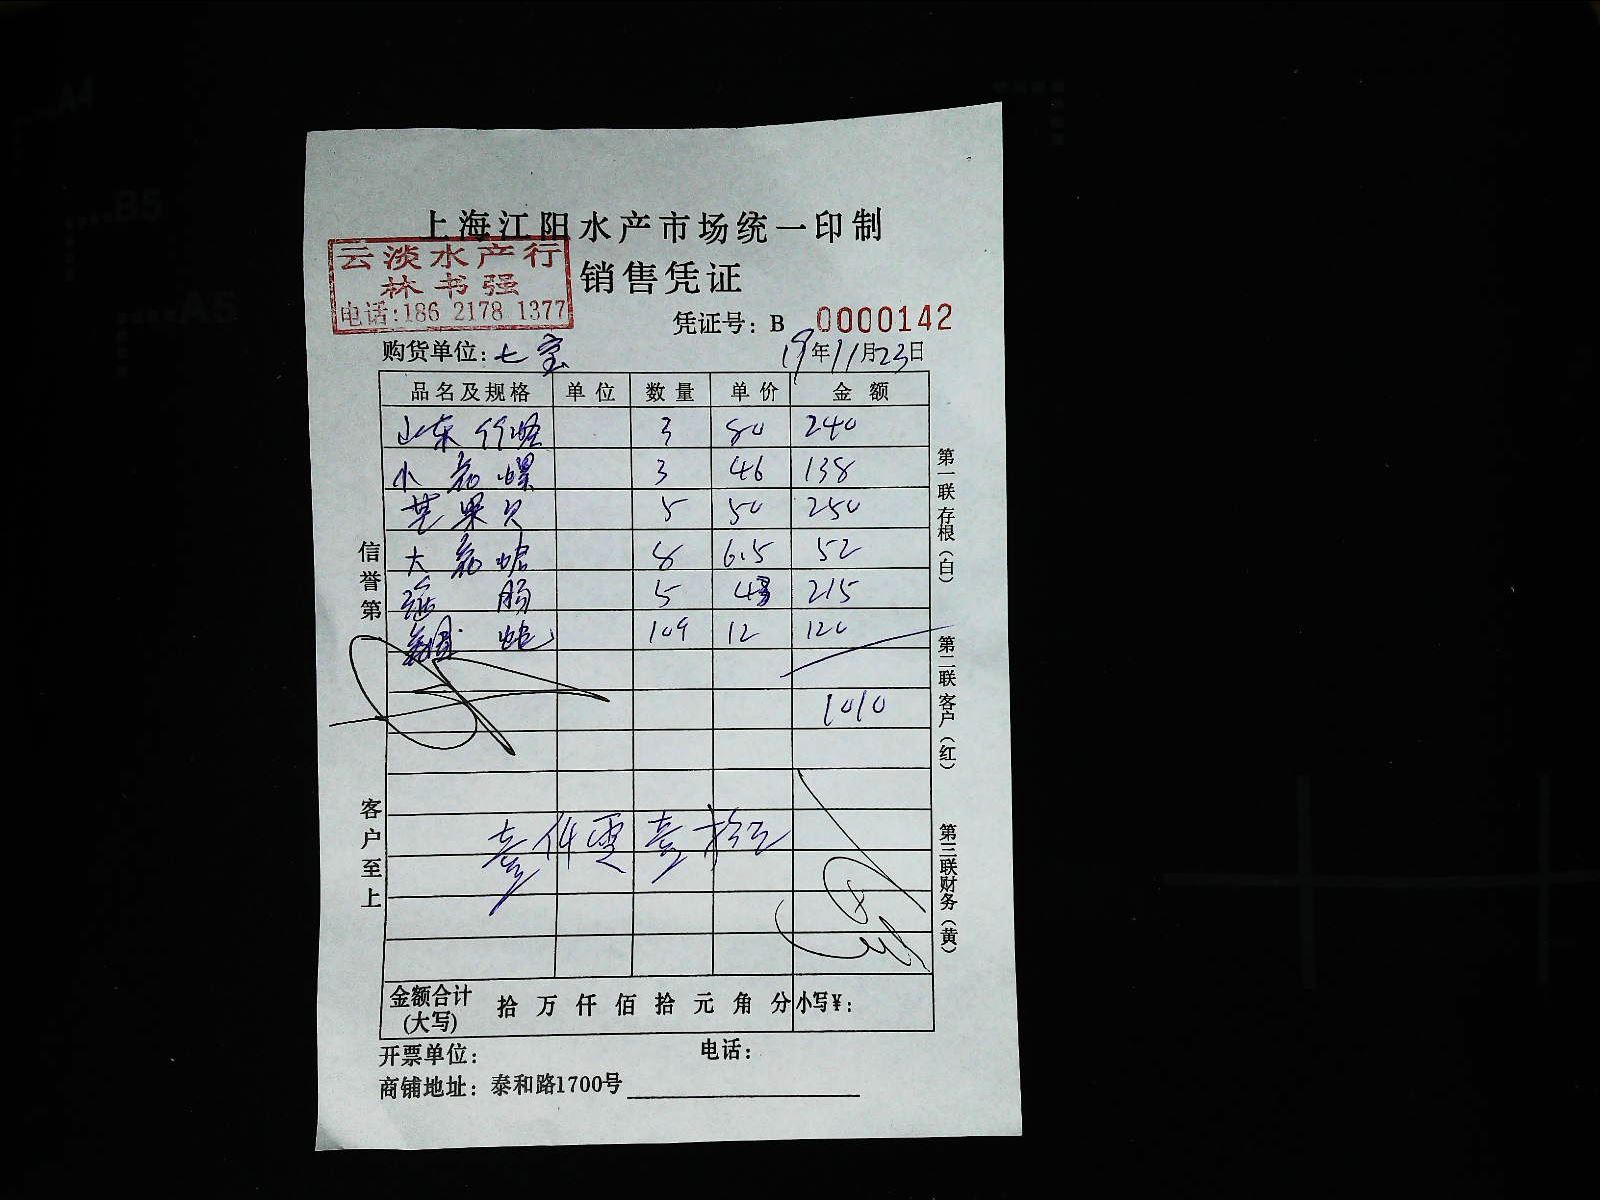 上海江阳水产市场统一印制
云淡水产行
林书强
电话:186 2178 1377
销售凭证
凭证号: B 0000142
购货单位: 七宝 19年11月23日
品名及规格 单位 数量 单价 金额
山东竹蛏 3 80 240
小花螺 3 46 138
苹果贝 5 50 250
大花蛤 8 6.5 52
海肠 5 43 215
109 12 120
1010
壹仟零壹拾元
金额合计(大写) 拾 万 仟 佰 拾 元 角 分 小写¥:
开票单位: 电话:
商铺地址: 泰和路1700号
信誉第一
客户至上
第一联 存根(白)
第二联 客户(红)
第三联 财务(黄)